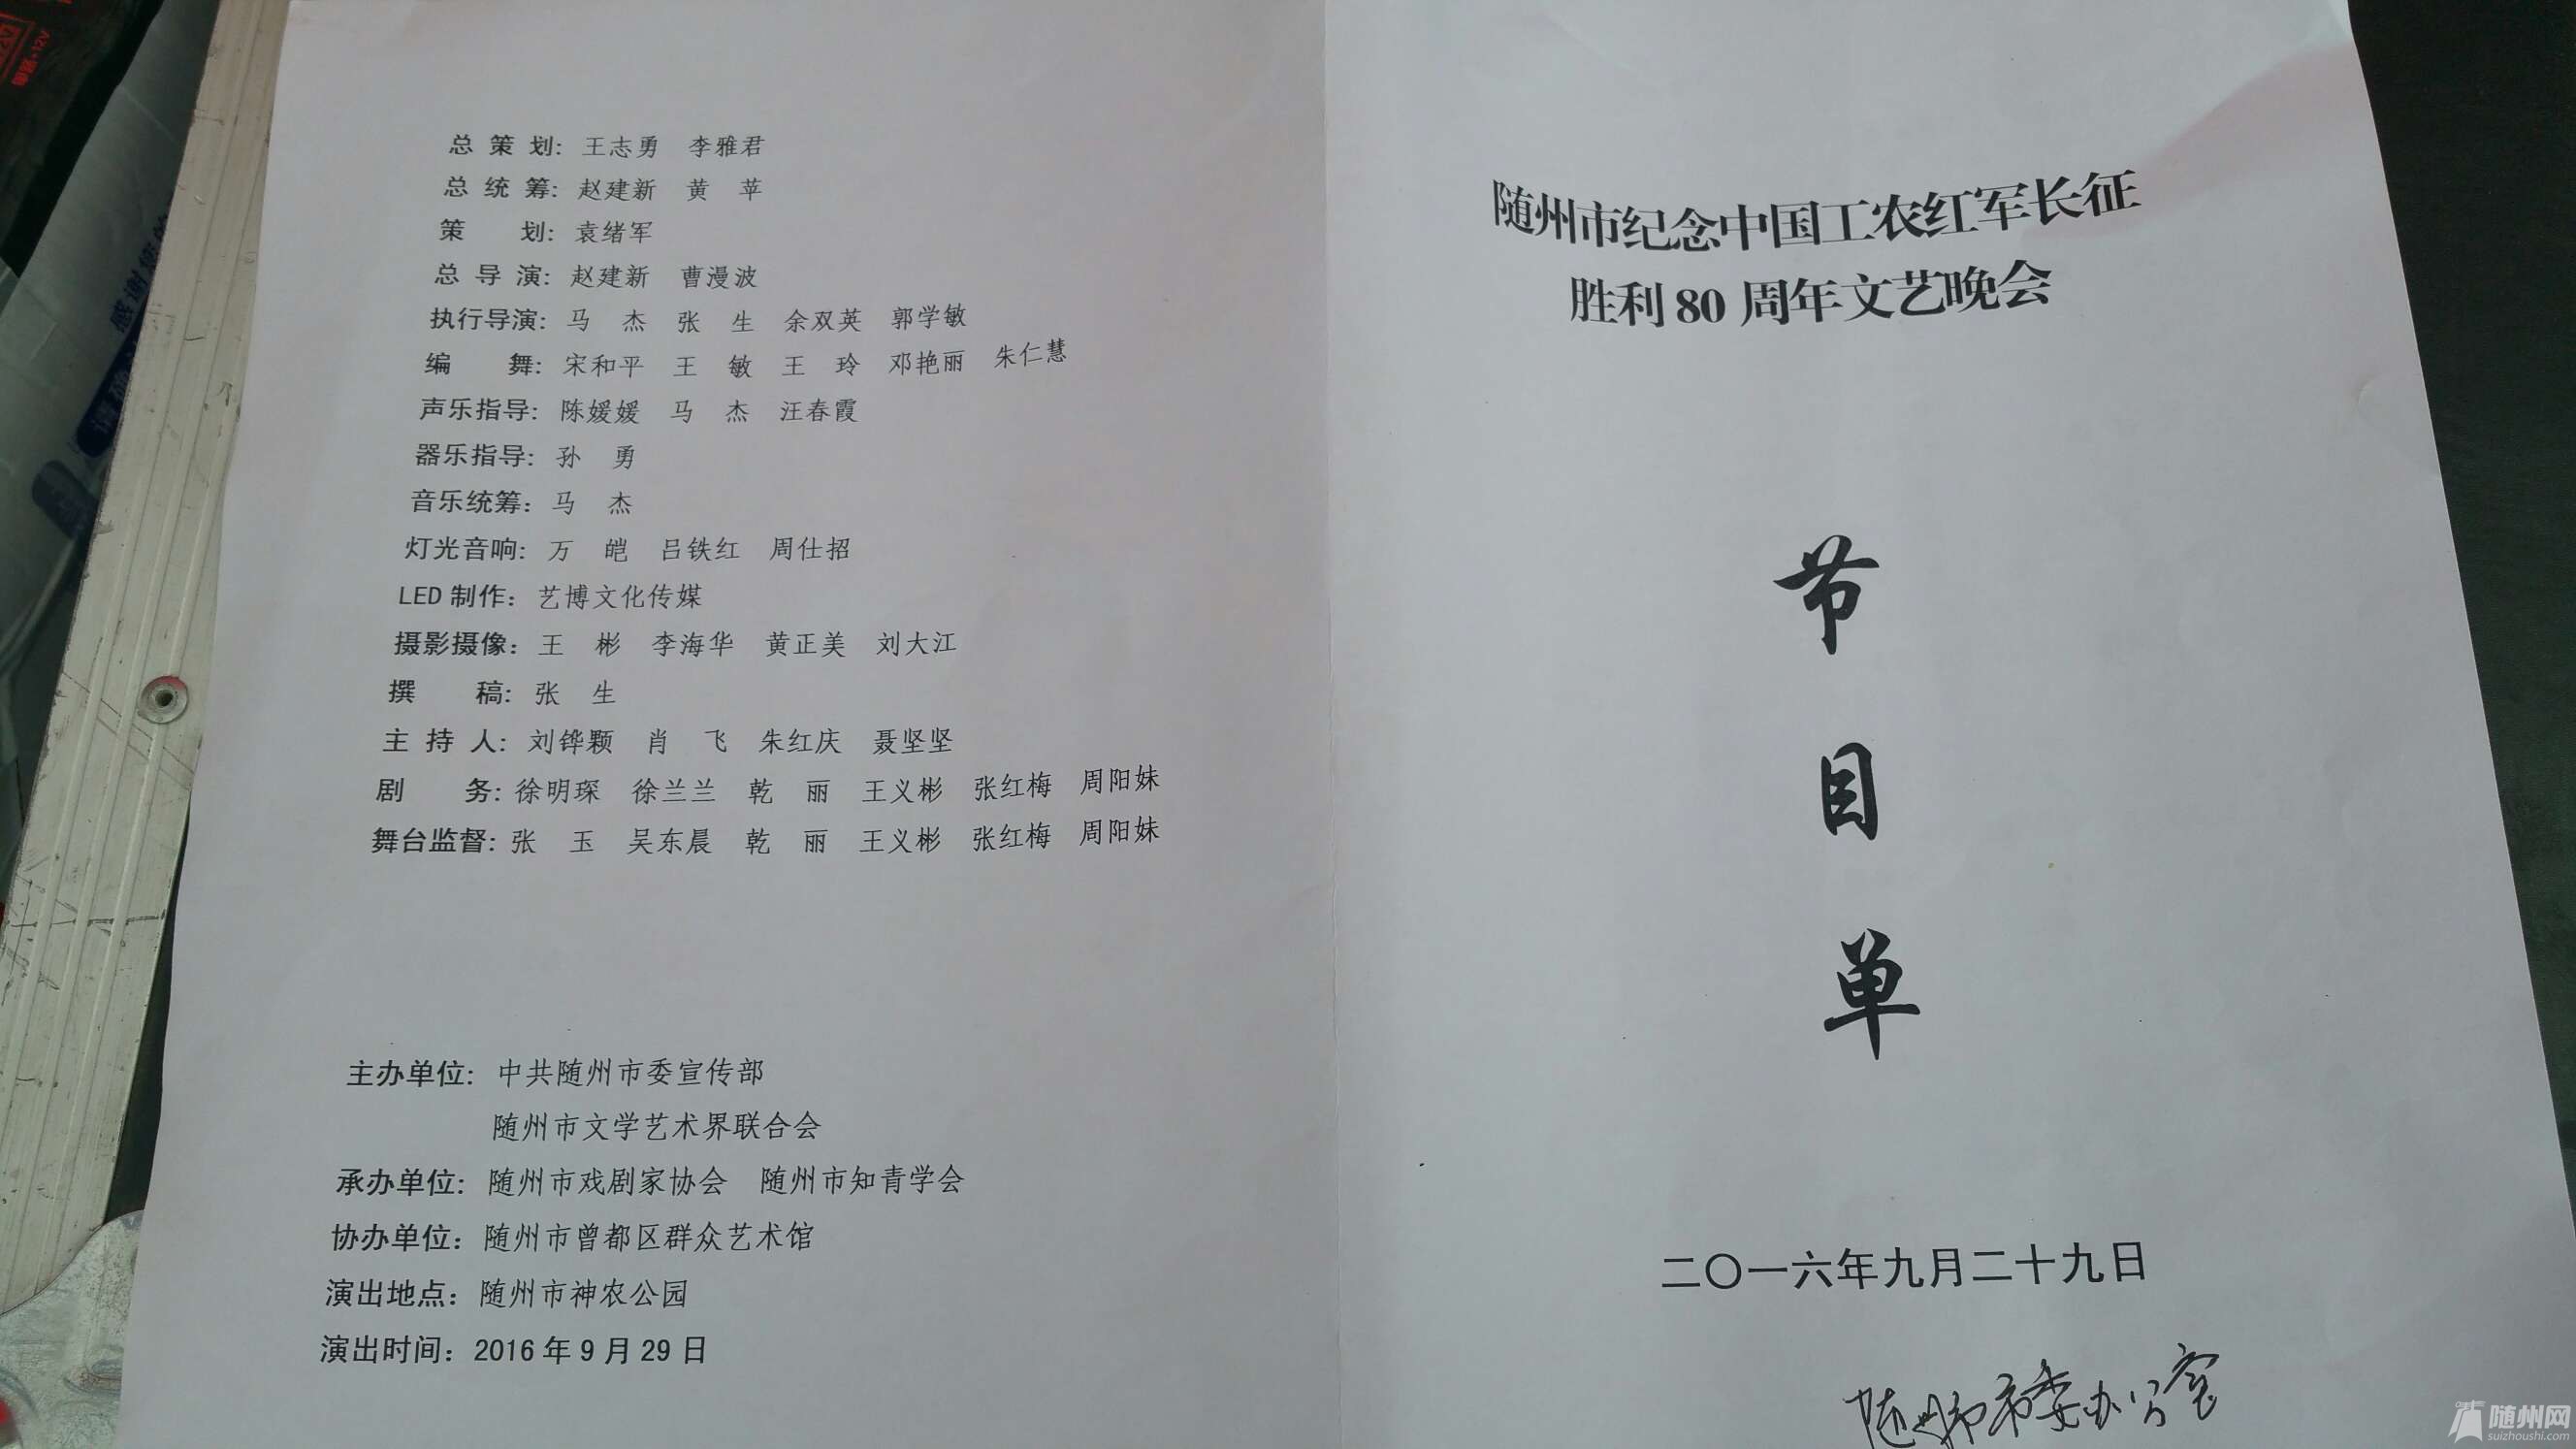 总策划：王志勇 李雅君
总统筹：赵建新 黄苹
策划：袁绪军
总导演：赵建新 曹漫波
执行导演：马杰 张生 余双英 郭学敏
编舞：宋和平 王敏 王玲 邓艳丽 朱仁慧
声乐指导：陈媛媛 马杰 汪春霞
器乐指导：孙勇
音乐统筹：马杰
灯光音响：万皑 吕铁红 周仕招
LED制作：艺博文化传媒
摄影摄像：王彬 李海华 黄正美 刘大江
撰稿：张生
主持人：刘铧颗 肖飞 朱红庆 聂坚坚
剧务：徐明琛 徐兰兰 乾丽 王义彬 张红梅 周阳妹
舞台监督：张玉 吴东晨 乾丽 王义彬 张红梅 周阳妹
主办单位：中共随州市委宣传部
随州市文学艺术界联合会
承办单位：随州市戏剧家协会 随州市知青学会
协办单位：随州市曾都区群众艺术馆
演出地点：随州市神农公园
演出时间：2016年9月29日
随州市纪念中国工农红军长征
胜利80周年文艺晚会
节
目
单
二〇一六年九月二十九日
随州市市委办公室
随州网
suizhoushi.com
感谢您的